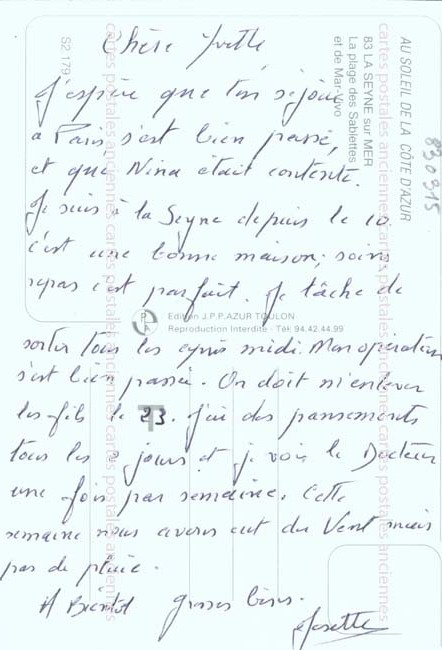 Chère Yvette
J'espère que ton séjour
a Paris s'est bien passé,
et que Nina était contente.
Je suis à la Seyne depuis le 10
c'est une bonne maison; soins
repas c'est parfait. Je tâche de
sortir tous les après midi. Mon opération
s'est bien passée. On doit m'enlever
les fils le 23. J'ai des pansements
tous les 2 jours et je vois le Docteur
une fois par semaine. Cette
semaine nous avons eut du Vent mais
pas de pluie.
A Bientôt grosses bises.
Josette
AU SOLEIL DE LA CÔTE D'AZUR
83 LA SEYNE sur MER
La plage des Sablettes
et de Mar-Vivo
S2 179
830915
Edition J.P.P.AZUR TOULON
Reproduction Interdite - Tél. 94.42.44.99
cartes postales anciennes cartes postales anciennes cartes postales anciennes
cartes postales anciennes cartes postales anciennes cartes postales anciennes